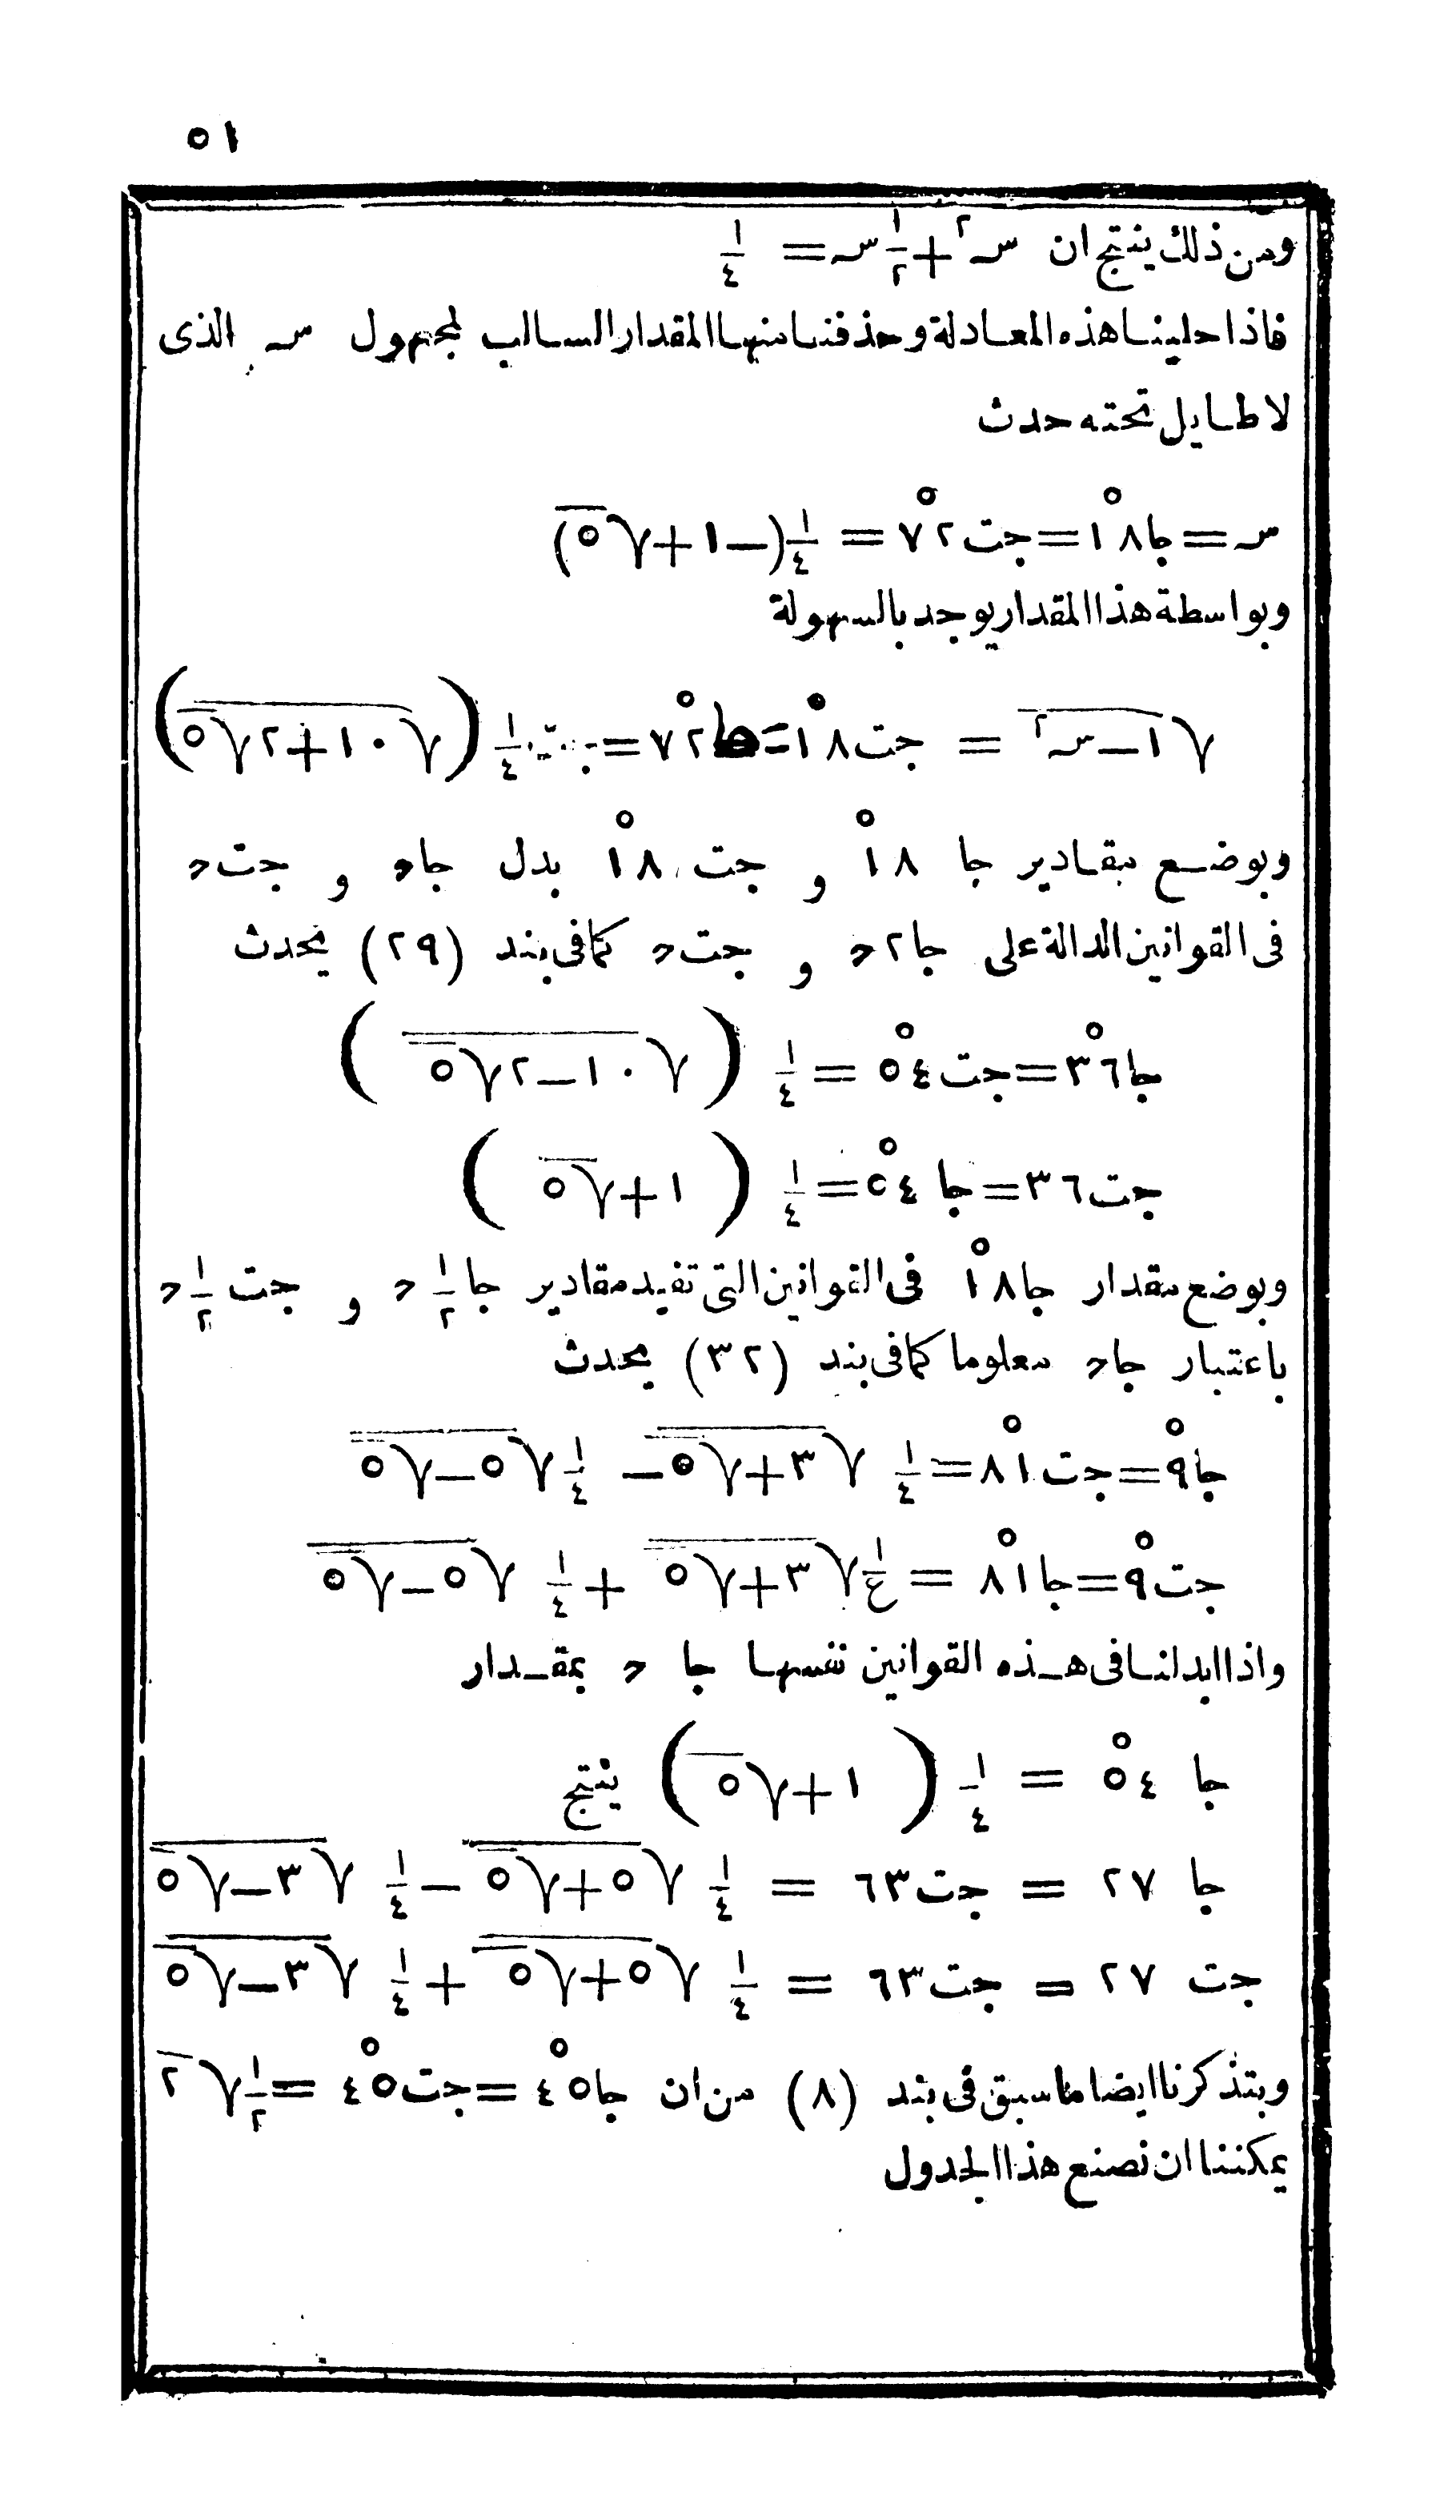 ٥١
ومن ذلك ينتج ان س٢ + ١/٢ س = ١/٤
فاذا حلينا هذه المعادلة وحذفنا منها المقدار السالب لمجهول س الذى
لا طايل تحته حدث
س = جا ١٨° = جت ٧٢° = ١/٤ (−١+√٥)
وبواسطة هذا المقدار يوجد بالسهولة
√(١−س٢) = جت ١٨° = جا ٧٢° = ١/٤ (√(١٠+٢√٥))
وبوضع مقادير جا ١٨° و جت ١٨° بدل جا د و جت د
فى القوانين الدالة على جا ٢ د و جت د كما فى بند (٢٩) يحدث
جا ٣٦° = جت ٥٤° = ١/٤ (√(١٠−٢√٥))
جت ٣٦ = جا ٥٤° = ١/٤ (١+√٥)
وبوضع مقدار جا ١٨° فى القوانين التى تفيد مقادير جا ١/٢ د و جت ١/٢ د
باعتبار جا د معلوما كما فى بند (٣٢) يحدث
جا ٩° = جت ٨١° = ١/٤ √(٣+√٥) − ١/٤ √(٥−√٥)
جت ٩° = جا ٨١° = ١/٤ √(٣+√٥) + ١/٤ √(٥−√٥)
واذا ابدلنا فى هذه القوانين نفسها جا د بمقدار
جا ٥٤° = ١/٤ (١+√٥) ينتج
جا ٢٧ = جت ٦٣ = ١/٤ √(٥+√٥) − ١/٤ √(٣−√٥)
جت ٢٧ = جت ٦٣ = ١/٤ √(٥+√٥) + ١/٤ √(٣−√٥)
وبتذكرنا ايضا ما سبق فى بند (٨) من ان جا ٤٥° = جت ٤٥° = ١/٢ √٢
يمكننا ان نصنع هذا الجدول